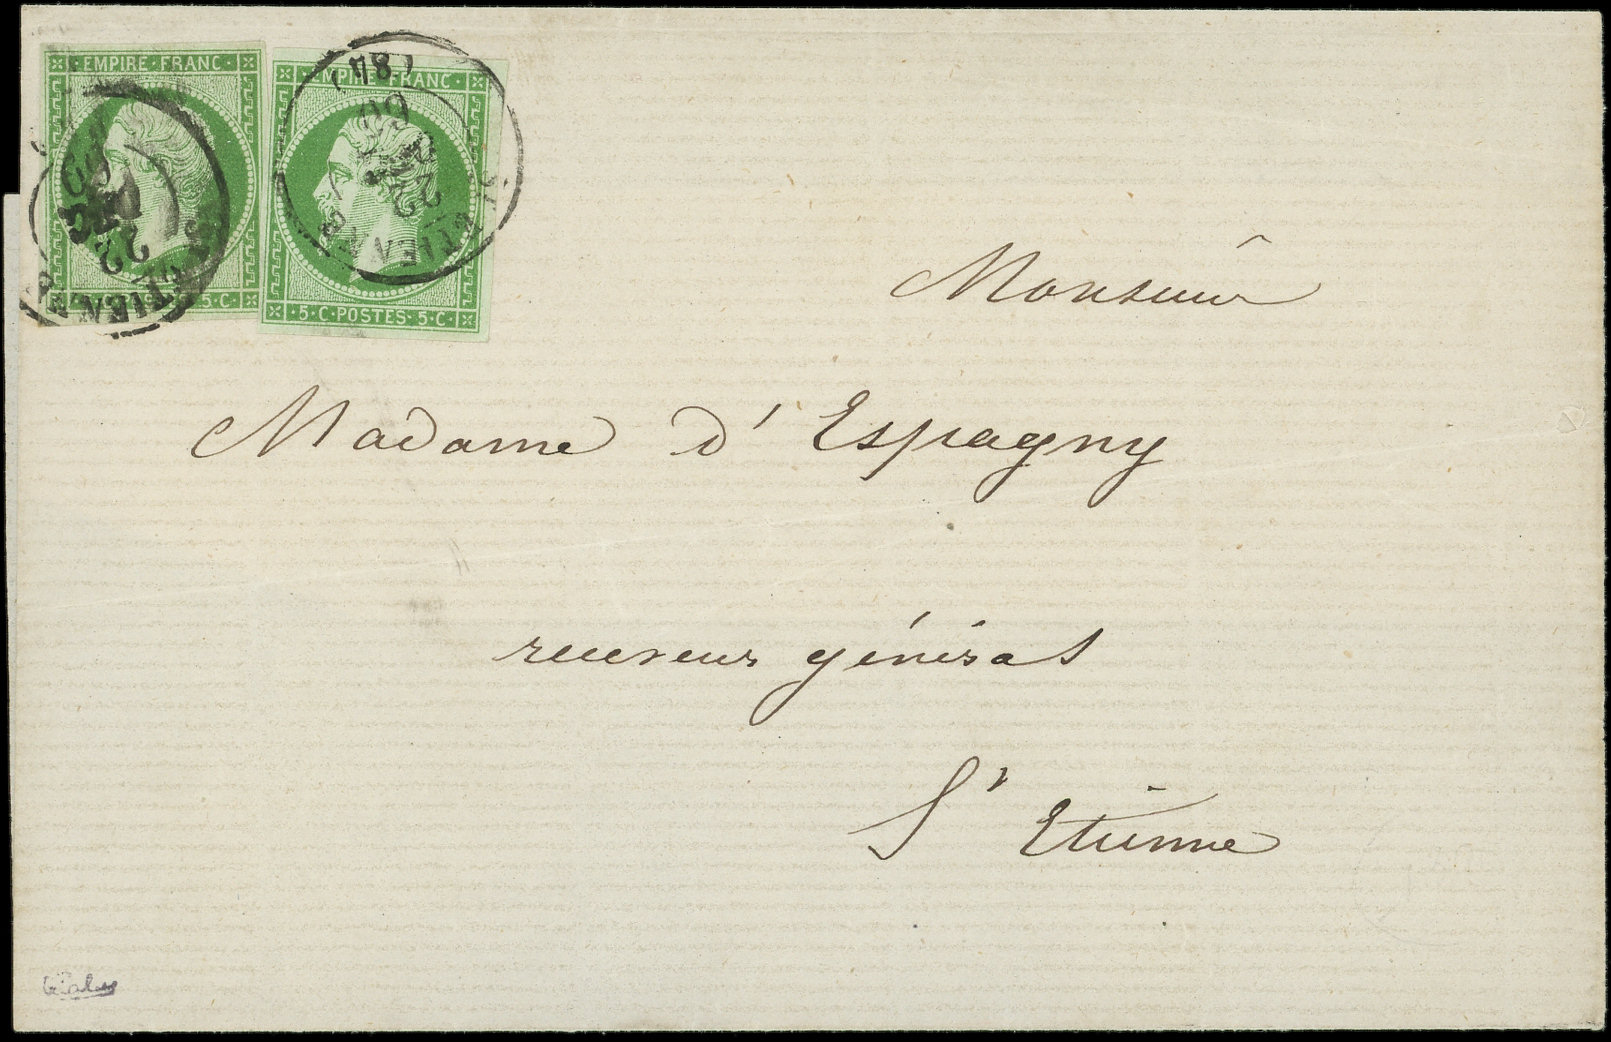 EMPIRE · FRANC ·
5 · C ·
EMPIRE · FRANC ·
· 5 · C · POSTES · 5 · C ·
22
60
ST ETIENNE
22
60
(84)
Monsieur
Madame d'Espagny
receveur général
St Etienne